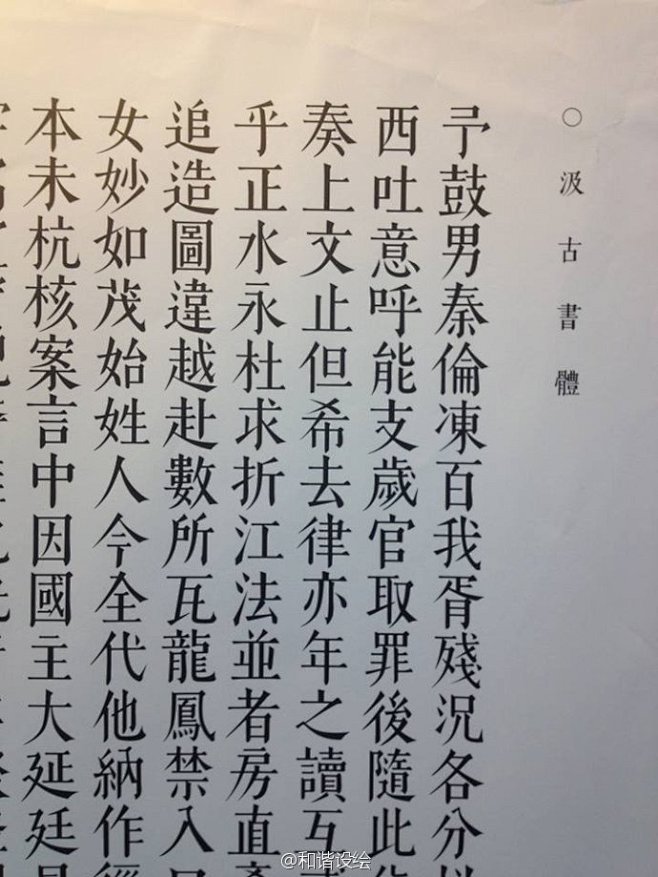 ○汲古書體
予鼓男秦倫凍百我胥殘況各分
西吐意呼能支歲官取罪後隨此
奏上文止但希去律亦年之讀互
乎正水永杜求折江法並者房直
追造圖違越赴數所瓦龍鳳禁入
女妙如茂始姓人今全代他納作
本未杭核案言中因國主大延廷
@和谐设绘